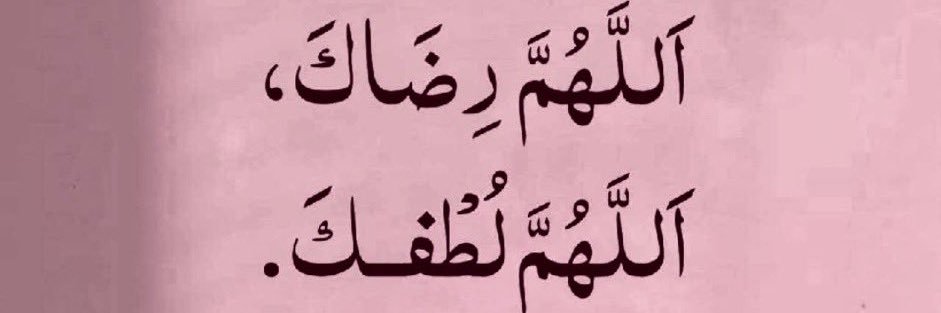 اَللَّهُمَّ رِضَاكَ،
اَللَّهُمَّ لُطْفـكَ.